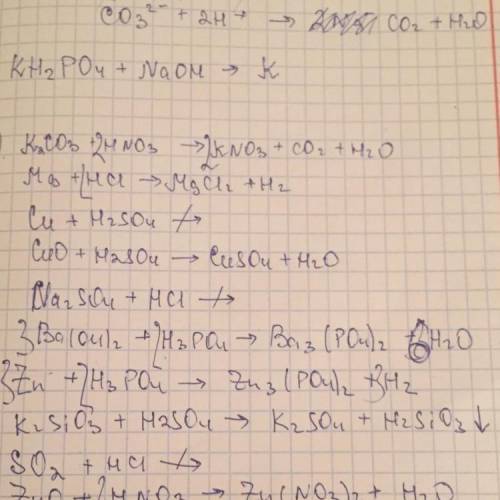 CO3²⁻ + 2H⁺ → CO2 + H2O
KH2PO4 + NaOH → K
K2CO3 + 2HNO3 → 2KNO3 + CO2 + H2O
Mg + 2HCl → MgCl2 + H2
Cu + H2SO4 ↛
CuO + H2SO4 → CuSO4 + H2O
Na2SO4 + HCl ↛
3Ba(OH)2 + 2H3PO4 → Ba3(PO4)2 + 6H2O
3Zn + 2H3PO4 → Zn3(PO4)2 + 3H2
K2SiO3 + H2SO4 → K2SO4 + H2SiO3↓
SO2 + HCl ↛
ZnO + 2HNO3 → Zn(NO3)2 + H2O